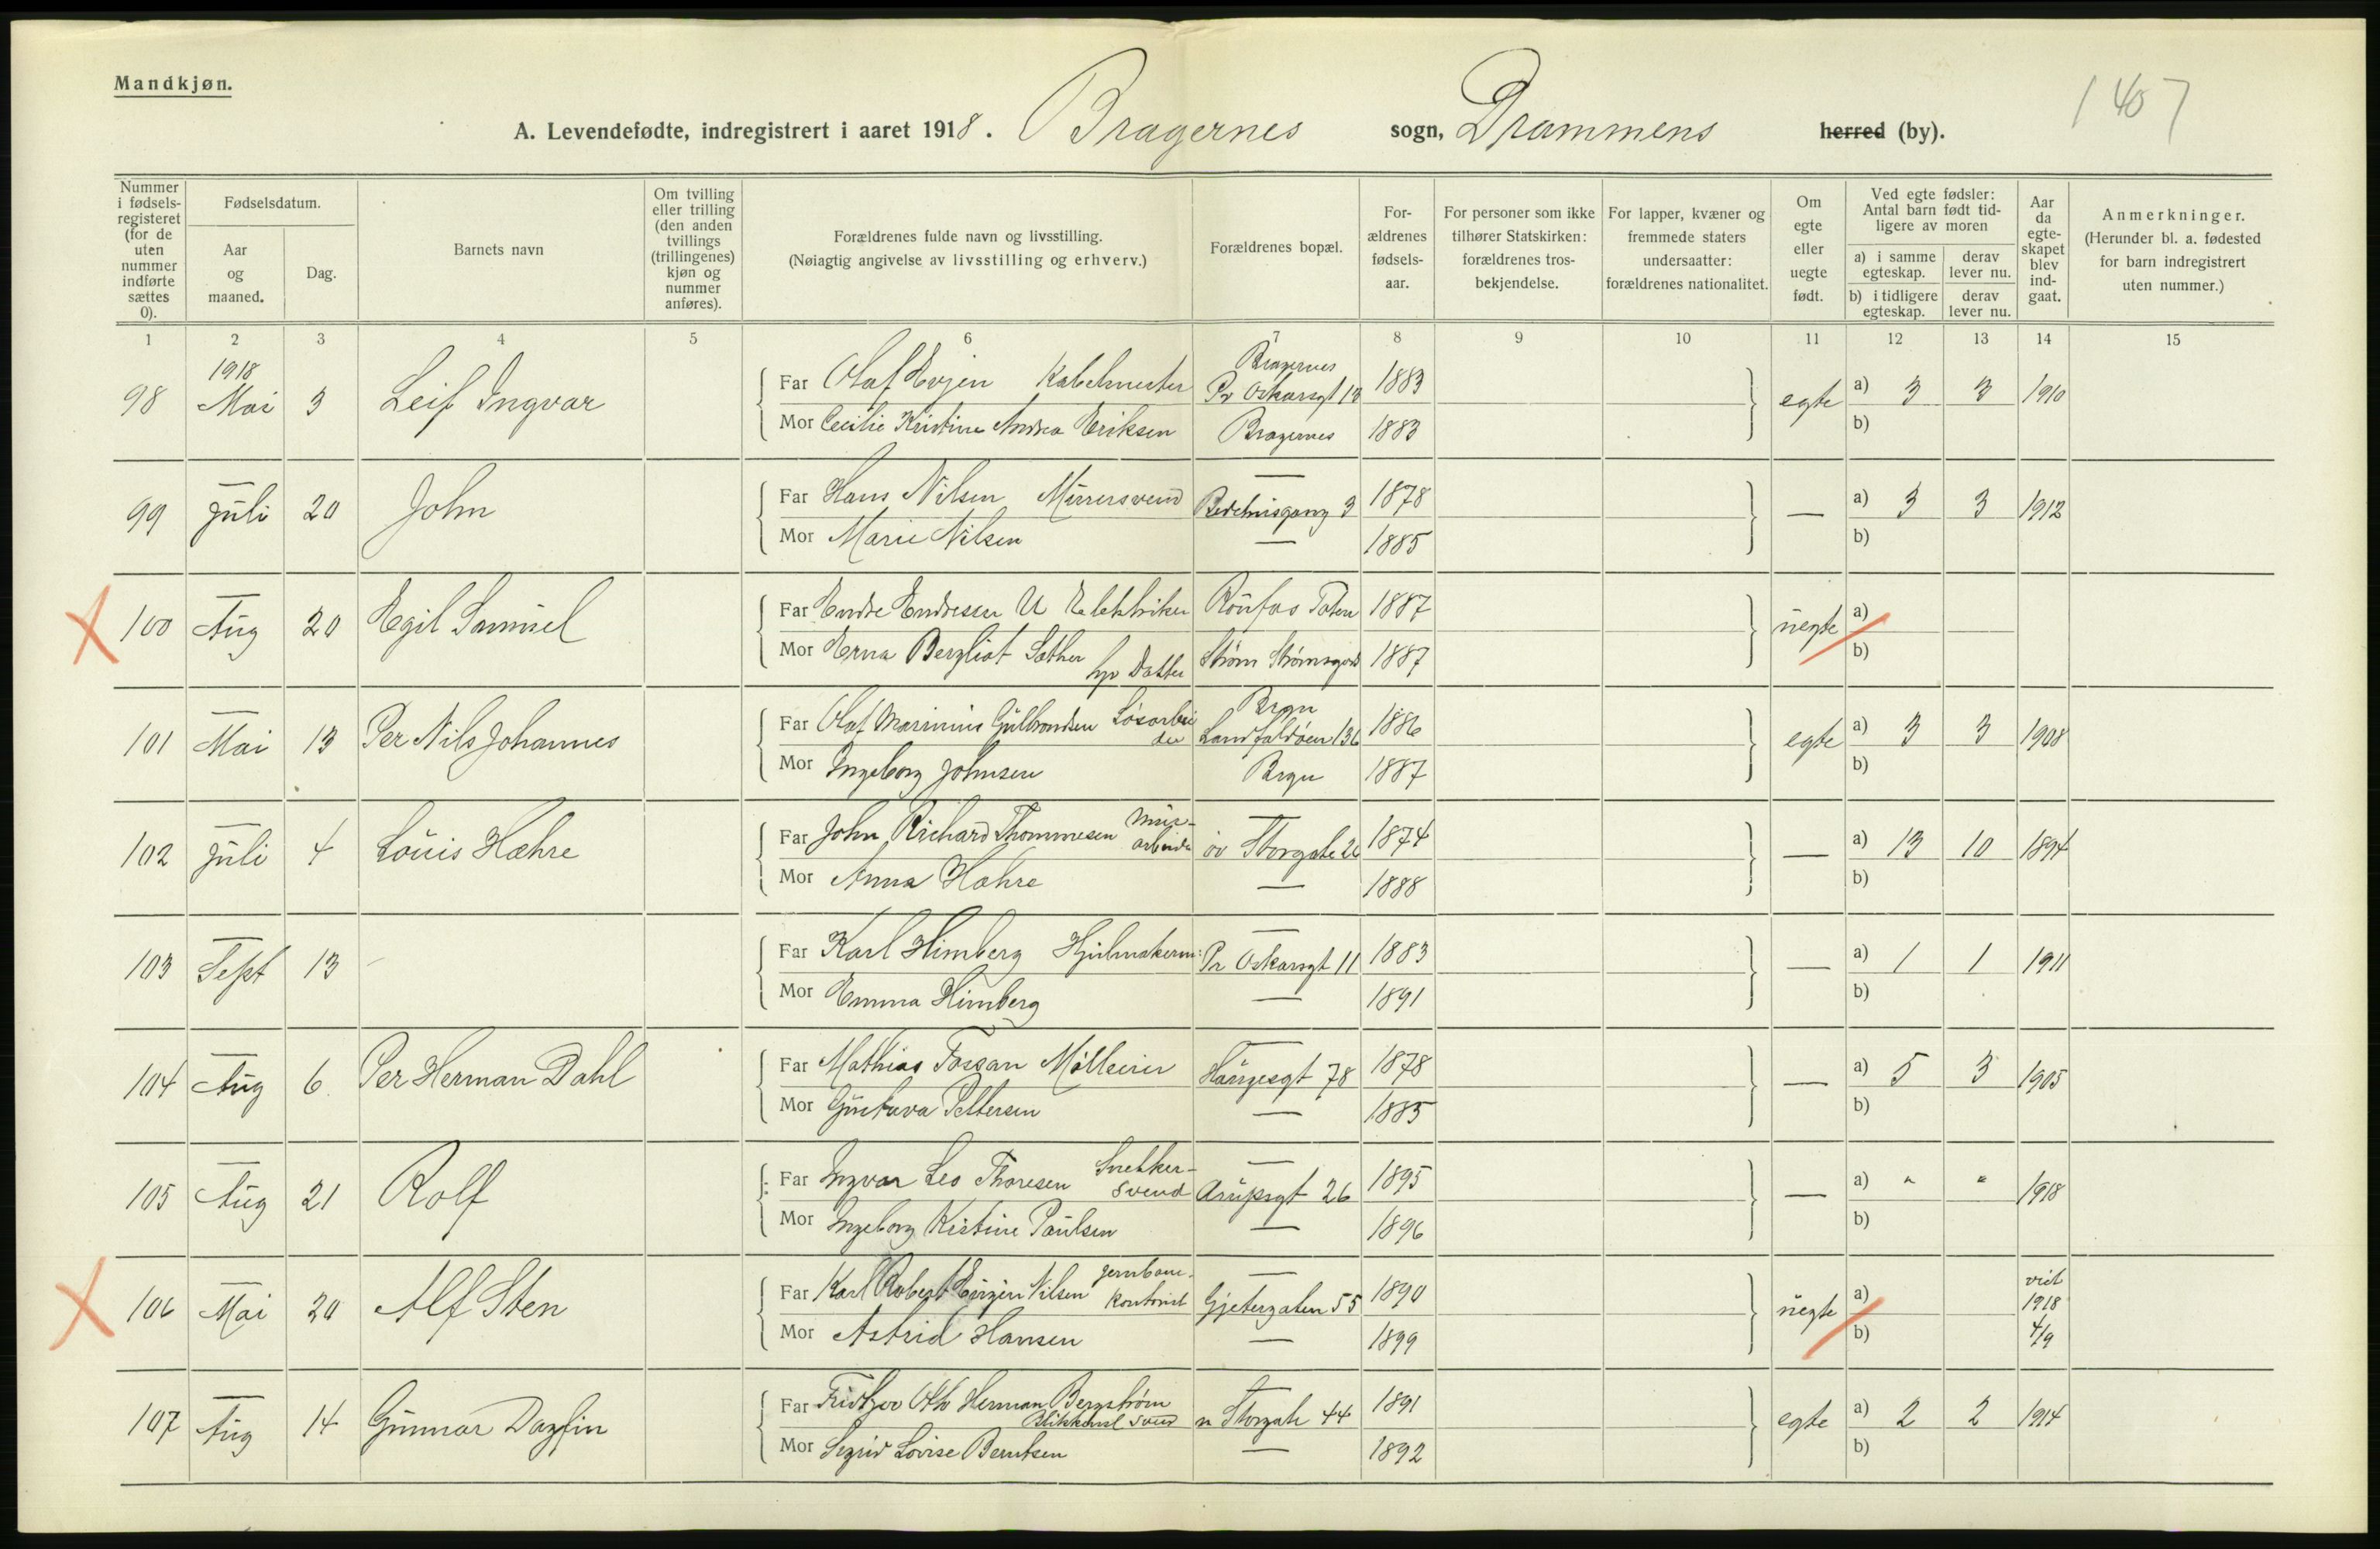 Mandkjøn.
1407
A. Levendefødte, indregistrert i aaret 1918. Bragernes sogn, Drammens herred (by).
Nummer i fødselsregisteret (for de uten nummer indførte sættes 0).
Fødselsdatum.
Aar og maaned.
Dag.
Barnets navn
Om tvilling eller trilling (den anden tvillings (trillingenes) kjøn og nummer anføres).
Forældrenes fulde navn og livsstilling.
(Nøiagtig angivelse av livsstilling og erhverv.)
Forældrenes bopæl.
Forældrenes fødselsaar.
For personer som ikke tilhører Statskirken: forældrenes trosbekjendelse.
For lapper, kvæner og fremmede staters undersaatter: forældrenes nationalitet.
Om egte eller uegte født.
Ved egte fødsler: Antal barn født tidligere av moren
a) i samme egteskap.
derav lever nu.
b) i tidligere egteskap.
derav lever nu.
Aar da egteskapet blev indgaat.
Anmerkninger.
(Herunder bl. a. fødested for barn indregistrert uten nummer.)
1 2 3 4 5 6 7 8 9 10 11 12 13 14 15
98 1918 Mai 3 Leif Ingvar Far Olaf Evjen Kabelmester Bragernes Pr Oskarsgt 13 1883 egte a) 3 3 1910
Mor Cecilie Kristine Andrea Eriksen Bragernes 1883 b)
99 — Juli 20 John Far Hans Nilsen Murersvend — 3 1878 — a) 3 3 1912
Mor Marie Nilsen — 1885 b)
X 100 — Aug 20 Egil Samuel Far Endre Endresen U Elektriker Raufos Toten 1887 uegte a)
Mor Erna Bergliot Sæther Strøm Strømsgod 1887 b)
101 — Mai 13 Per Nils Johannes Far Olaf Marinius Gulbrandsen Løsarbeider Brgn Landfaldøen 136 1886 egte a) 3 3 1908
Mor Ingeborg Johnsen Brgn 1887 b)
102 — Juli 4 Louis Hæhre Far John Richard Thommesen Murarbeider — øv Storgate 26 1874 — a) 13 10 1894
Mor Anna Hæhre — 1888 b)
103 — Sept 13 – Far Karl Himberg Hjulmakerm: — Pr Oskarsgt 11 1883 — a) 1 1 1911
Mor Emma Himberg — 1891 b)
104 — Aug 6 Per Herman Dahl Far Mathias Fossan — Haugesgt 78 1878 — a) 5 3 1905
Mor Gustava Pettersen — 1885 b)
105 — Aug 21 Rolf Far Ingvar Leo Thoresen Snekkersvend — Arupsgt 26 1895 — a) " " 1918
Mor Ingeborg Kristine Paulsen — 1896 b)
X 106 — Mai 20 Alf Sten Far Karl Robert Eugen Nilsen Jernbanekontorist — Gjetergaten 55 1890 uegte a) viet 1918 4/9
Mor Astrid Hansen — 1899 b)
107 — Aug 14 Gunnar Dagfin Far Fridtjov Otto Herman Bergstrøm Blikkensl svend n Storgate 44 1891 egte a) 2 2 1914
Mor Sigrid Lovise Berntsen — 1892 b)